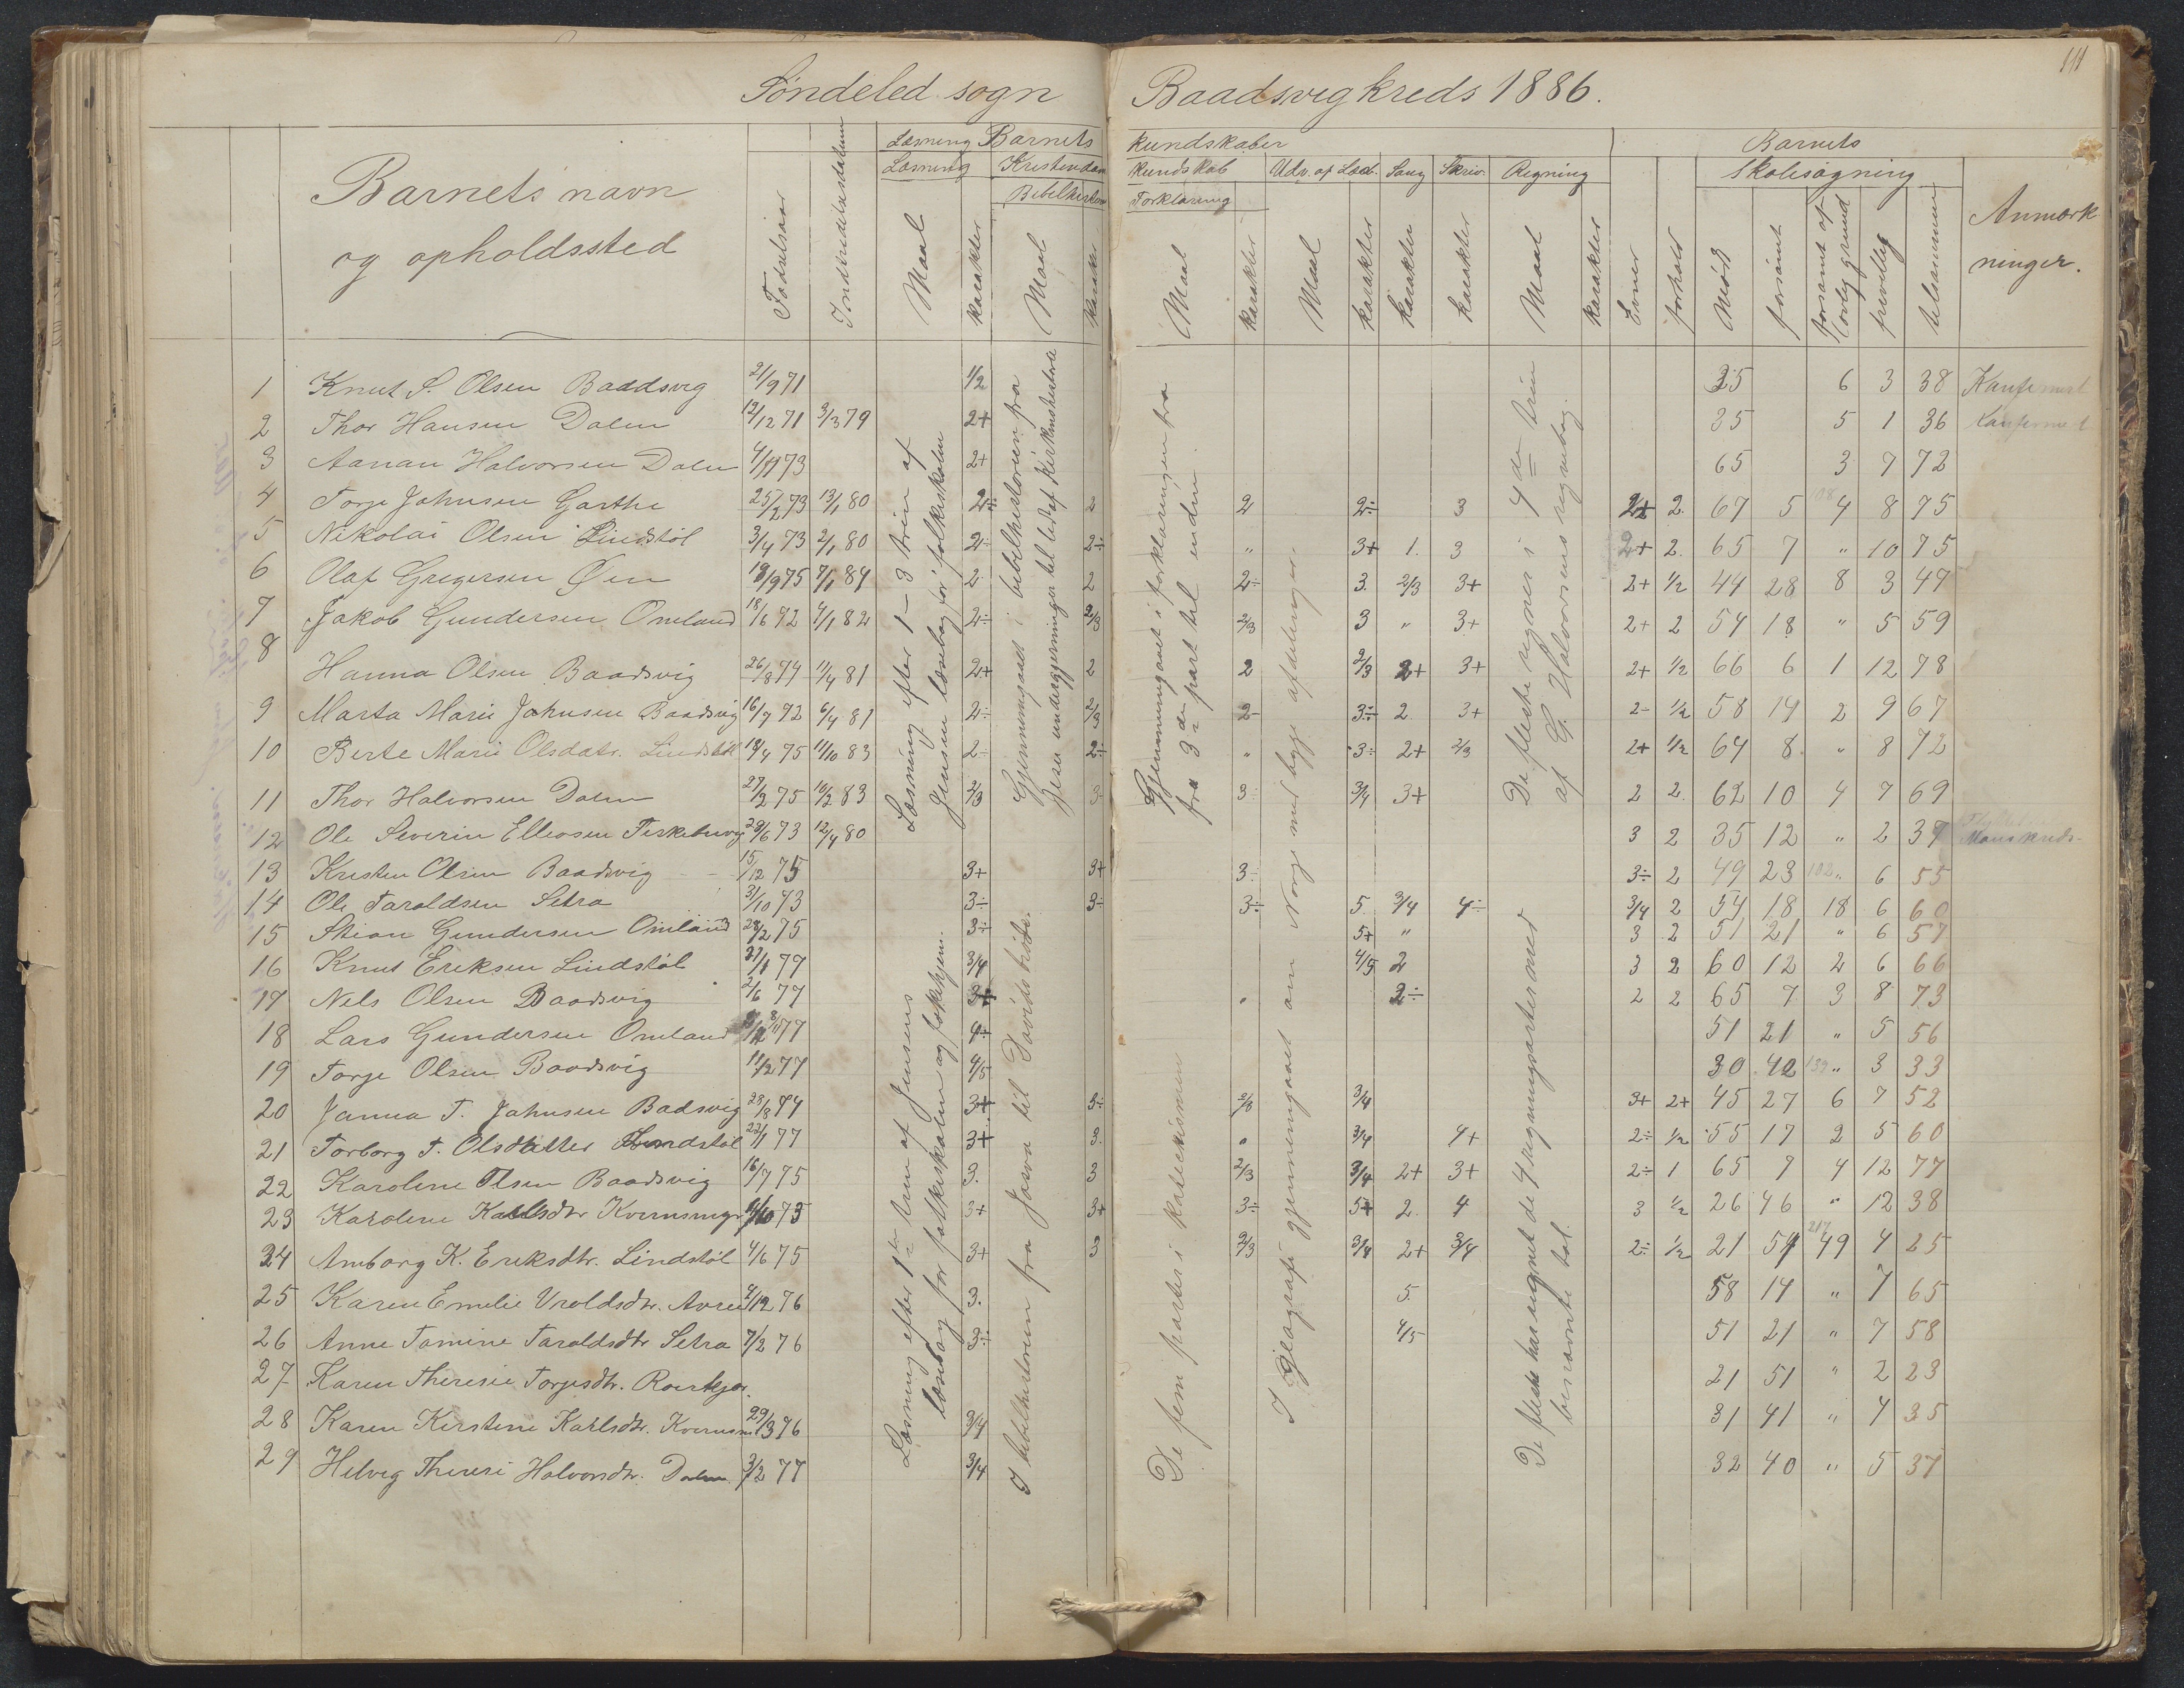 111
Søndeled sogn Baadsvig kreds 1886.
Læsning Barnets kundskaber Barnets
Læsning Kristendom kundskab Udv. af Læseb. Sang Skriv. Regning Skolesøgning
Bibelhistorie Forklaring
Barnets navn og opholdssted Fødselsaar Indtrædelsesdatum Maal karakter Maal karakter Maal karakter Maal karakter karakter karakter Maal karakter Evner forhold Mødt forsømt forsømt af lovlig grund frivillig tilsammen Anmærkninger.
1 Knut S. Olsen Baadsvig 21/9 71 1/2 35 6 3 38 Konfirmert
2 Thor Hansen Dalen 12/12 71 3/3 79 2+ 35 5 1 36 Konfirmert
3 Aanan Halvorsen Dalen 73 2+ 65 3 7 72
4 Torje Johnsen Garthe 25/2 73 13/1 80 2÷ 2 2 2÷ 3 2+ 2. 67 5 108 4 8 75
5 Nikolai Olsen Lindstøl 3/4 73 2/1 80 2÷ 2÷ " 3+ 1. 3 2+ 2. 65 7 " 10 75
6 Olaf Gregersen Øen 18/9 75 7/1 84 2 2 2÷ 3. 2/3 3+ 2+ 1/2 44 28 8 3 47
7 Jakob Gundersen Omland 18/6 72 4/1 82 2÷ 2/3 2/3 3 " 3+ 2+ 2 54 18 " 5 59
8 Hanna Olsen Baadsvig 26/8 74 11/4 81 2+ 2 2 2/3 2+ 3+ 2+ 1/2 66 6 1 12 78
9 Marta Marie Johnsen Baadsvig 16/7 72 6/4 81 2÷ 2/3 2- 3÷ 2. 3+ 2- 1/2 58 14 2 9 67
10 Berte Marie Olsdatr. Lindstøl 18/4 75 11/10 83 2- 2÷ " 3÷ 2+ 2/3 2+ 1/2 64 8 " 8 72
11 Thor Halvorsen Dalen 27/2 75 10/2 83 2/3 3 3÷ 3/4 3+ 2 2. 62 10 4 7 69
12 Ole Severin Ellevsen 28/6 73 12/4 80 3 2 35 12 " 2 37
13 Kristen Olsen Baadsvig 15/12 75 3+ 3+ 3- 3÷ 2 49 23 102 " 6 55
14 Ole Taraldsen Setra 31/10 73 3÷ 3÷ 3÷ 5. 3/4 4÷ 3/4 2 54 18 18 6 60
15 Stian Gundersen Omland 28/2 75 3÷ 5+ " 3 2 51 21 " 6 57
16 Knut Eriksen Lindstøl 77 3/4 4/5 2 3 2 60 12 2 6 66
17 Nels Olsen Baadsvig 2/6 77 3+ " 2÷ 2 2 65 7 3 8 73
18 Lars Gundersen Omland 77 4÷ 51 21 " 5 56
19 Torje Olsen Baadsvig 11/12 77 4/5 30 42 139 " 3 33
20 Janna T. Johnsen Badsvig 28/8 74 3+ 3÷ 2/3 3/4 3+ 2+ 45 27 6 7 52
21 Torborg T. Olsdatter Lindstøl 22/1 77 3+ 3. " 3/4 4+ 2÷ 1/2 55 17 2 5 60
22 Karoline Olsen Baadsvig 16/7 75 3. 3 2/3 3/4 2+ 3+ 2÷ 1 65 7 4 12 77
23 Karoline Karlsdtr 73 3+ 3+ 3÷ 5+ 2. 4 3 1/2 26 46 " 12 38
24 Amborg K. Eriksdtr. Lindstøl 4/6 75 3+ 3 2/3 3/4 2+ 3/4 2÷ 1/2 21 51 217 49 4 25
25 Karen Emelie Vroldsdtr. 76 3. 5. 58 14 " 7 65
26 Anne Tomine Taraldsdtr Setra 7/2 76 3÷ 4/5 51 21 " 7 58
27 Karen Theresie Torjesdtr. 21 51 " 2 23
28 Karen Kirstine Karlsdtr. 29/3 76 3/4 31 41 " 4 35
29 Helveg Therese Halvorsdtr. Dalen 3/2 77 3/4 32 40 " 5 37
Læsning efter 1 – 3 trin af
Jensen læsebog for folkeskolen
Gjennemgaaet i bibelhistorien fra
Jesu undergjerninger til
Gjennemgaaet i forklaringen fra
fra 3de part til enden.
De fleste regner i 4de trin
af G. Halvorsens regnebog.
Læsning efter 1ste trin af Jensens
læsebog for folkeskolen og folkehjem.
I bibelhistorien fra Josva til Davids tid
De fem parter i katechismen
I geografi gjennemgaaet om Norge med bygge afdelinger
De fleste har regnet de 4 regningsarter med
benævnte tal.